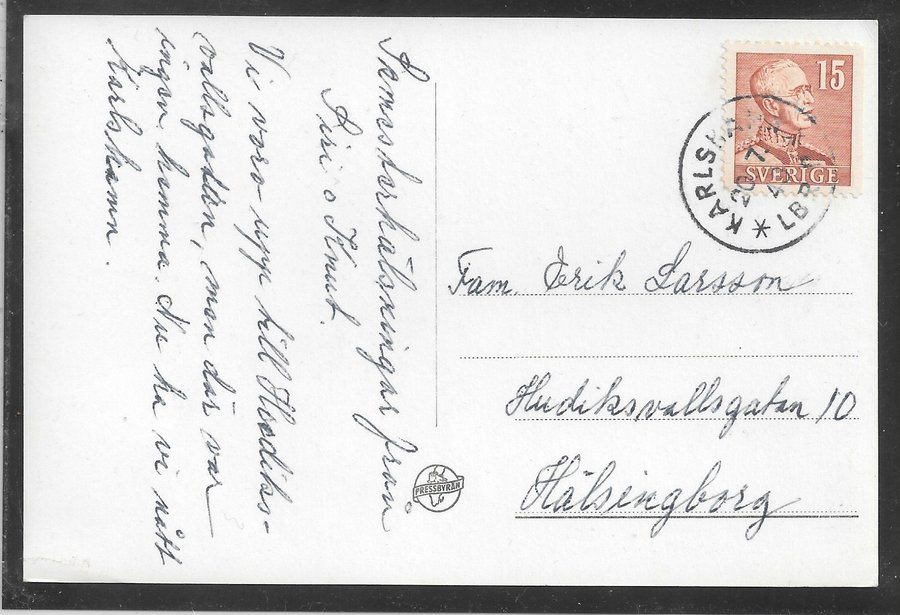 Semesterhälsningar från
Siri o Knut.
Vi voro upp till Hudiks-
vallsgatan, men där var
ingen hemma. Nu ha vi nått
Karlshamn.
15
SVERIGE
KARLSHAMN
20.7.
LBR
Fam. Erik Larsson
Hudiksvallsgatan 10
Hälsingborg
PRESSBYRÅN